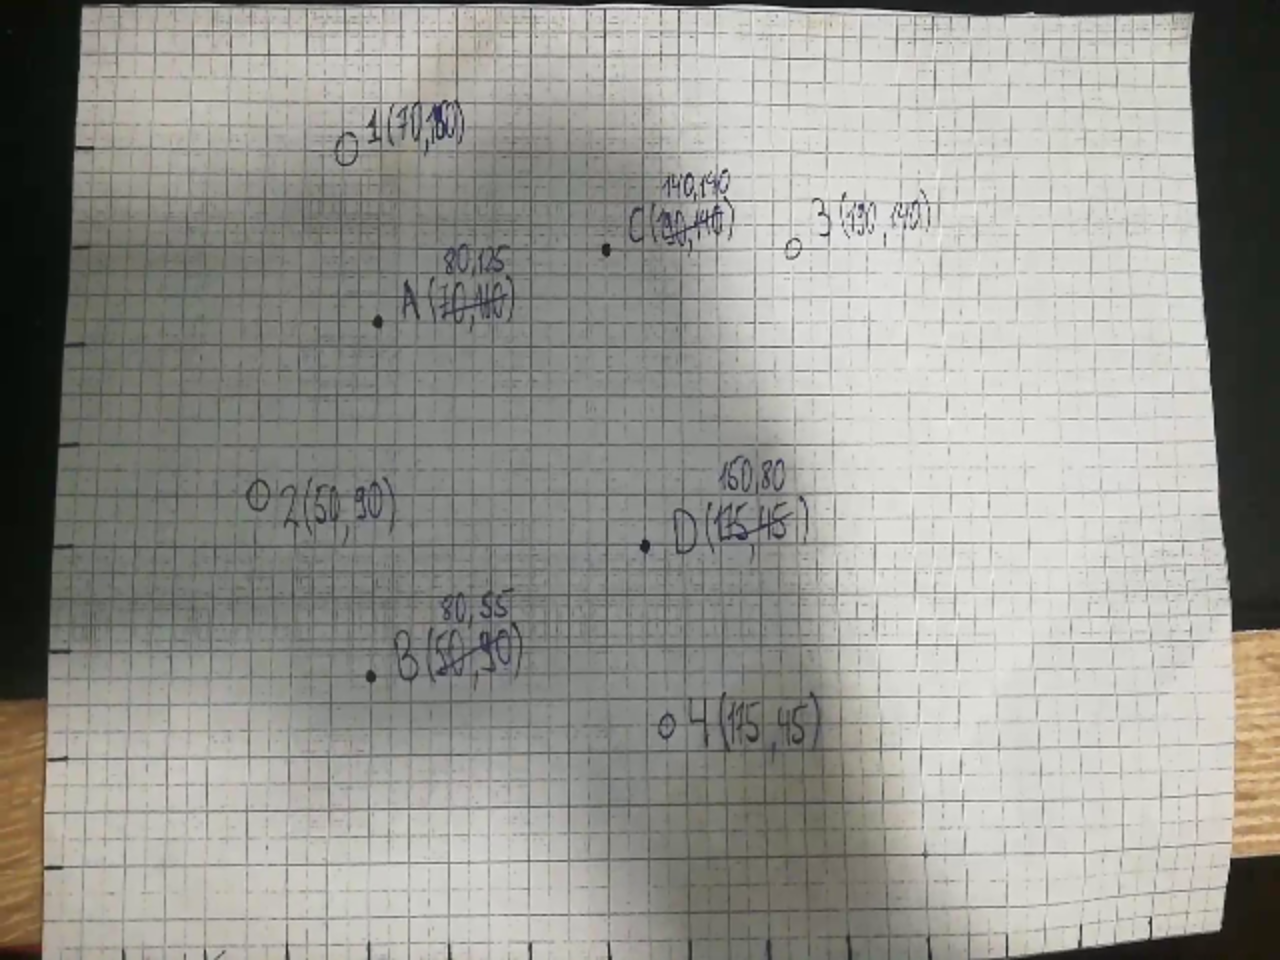 1(70,160)
140,140
C(190,140)
3(190,140)
80,125
A(70,160)
150,80
2(50,90)
D(175,45)
80,55
B(50,90)
4(175,45)